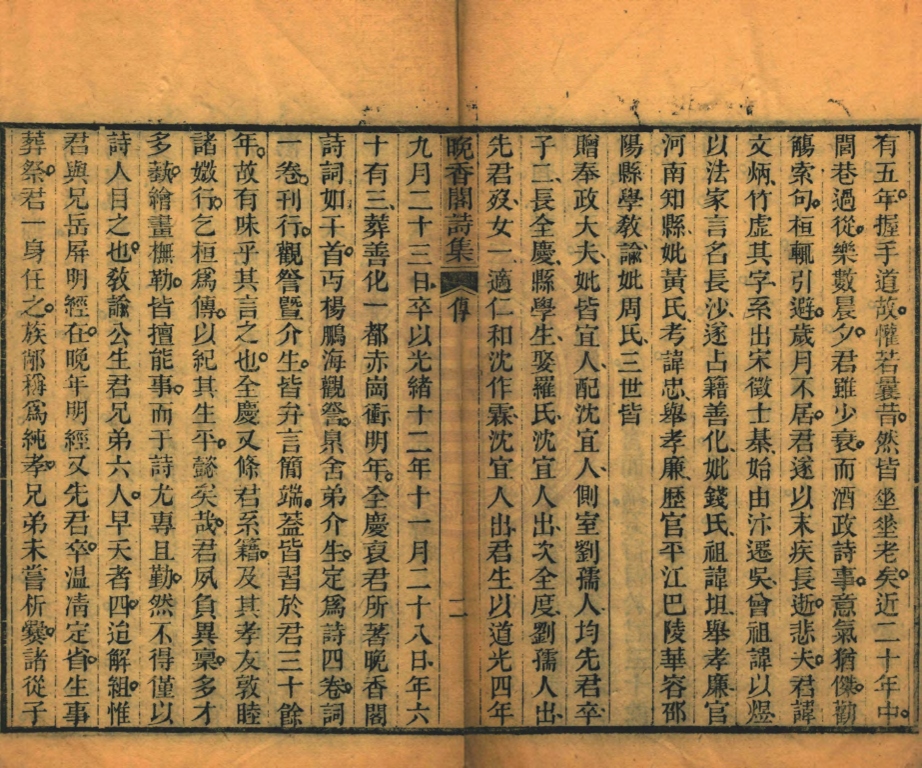 有五年握手道故懽若曩昔然皆垒垒老矣近二十年中
閭巷過從樂數晨夕君雖少衰而酒政詩事意氣猶傑勸
觴索句桓輒引避歲月不居君遂以末疾長逝悲夫君諱
文炳竹虛其字系出宋徵士綦始由汴遷吳曾祖諱以煜
以法家言名長沙遂占籍善化妣錢氏祖諱坦舉孝廉官
河南知縣妣黃氏考諱忠舉孝廉歷官平江巴陵華容邵
陽縣學敎諭妣周氏三世皆
贈奉政大夫妣皆宜人配沈宜人側室劉孺人均先君卒
子二長全慶縣學生娶羅氏沈宜人出次全度劉孺人出
先君歿女一適仁和沈作霖沈宜人出君生以道光四年
晚香閣詩集 傳 二
九月二十三日卒以光緒十二年十一月二十八日年六
十有三葬善化一都赤崗衝明年全慶裒君所著晚香閣
詩詞如干首丐楊鵬海觀詧泉舍弟介生定爲詩四卷詞
一卷刊行觀詧暨介生皆弁言簡端葢皆習於君三十餘
年故有味乎其言之也全慶又條君系籍及其孝友敦睦
諸媺行乞桓爲傳以紀其生平懿矣哉君夙負異稟多才
多藝繪畫橅勒皆擅能事而于詩尤專且勤然不得僅以
詩人目之也敎諭公生君兄弟六人早夭者四迨解組惟
君與兄岳屏明經在晚年明經又先君卒溫凊定省生事
葬祭君一身任之族郰稱爲純孝兄弟未嘗析爨諸從子